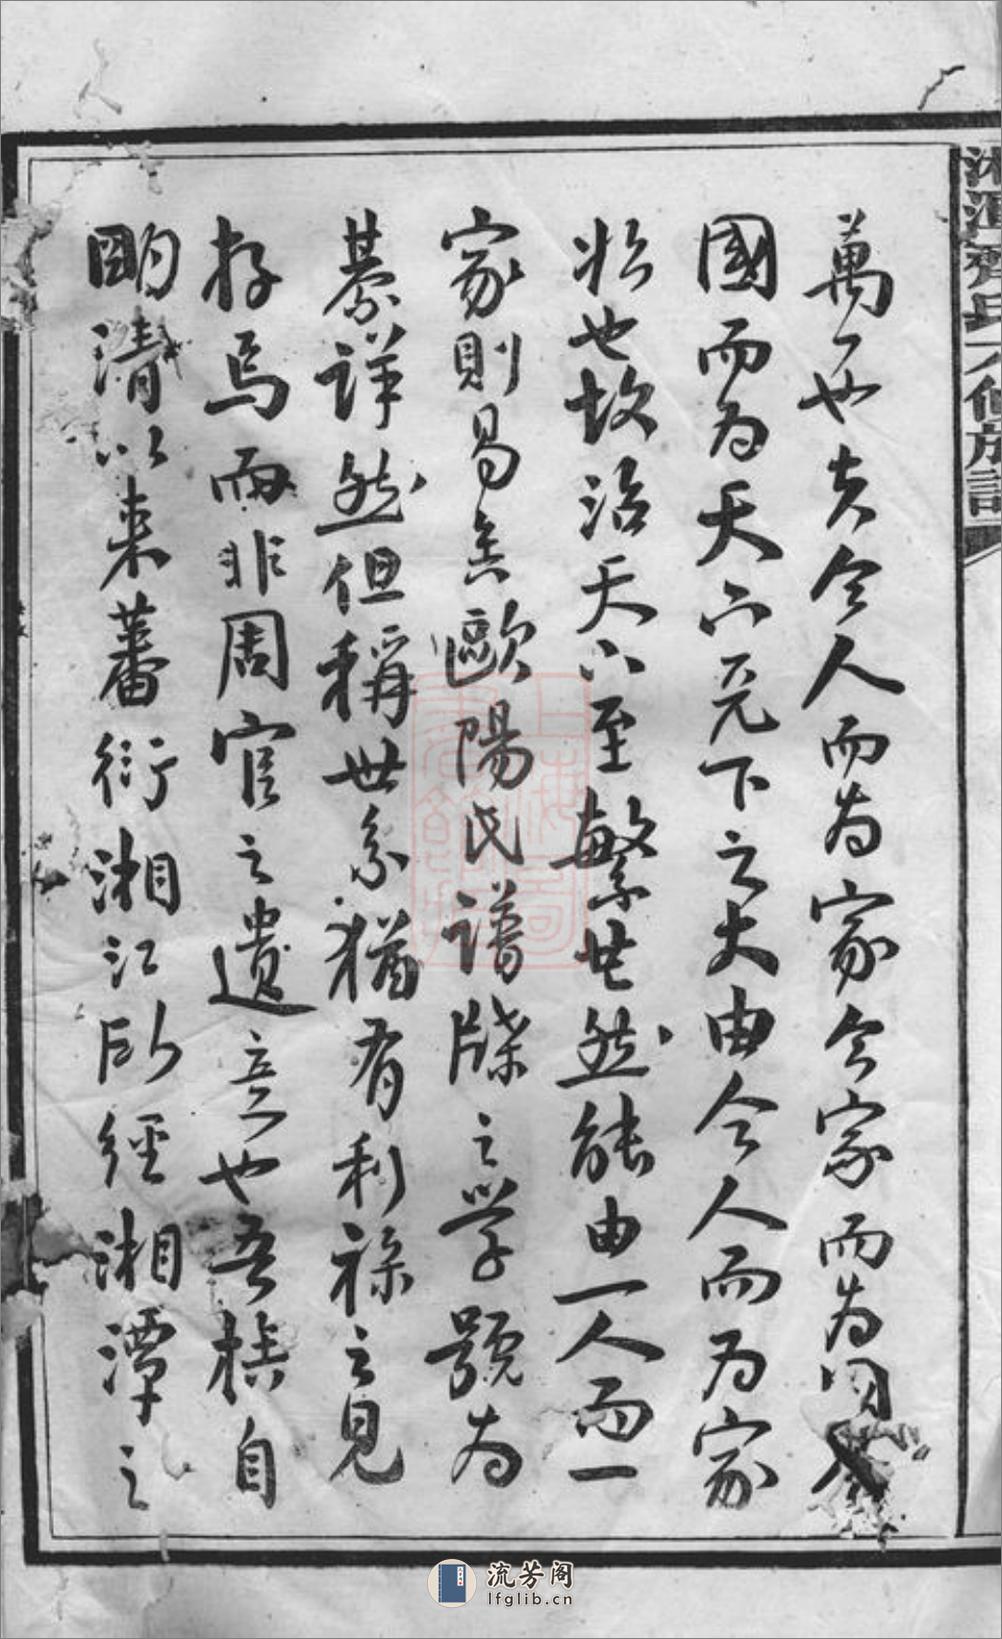 萬一也夫合人而為家合家而為國合
國而為天下天下之大由合人而為家
始也故治天下至繁也然能由一人而一
家則易矣歐陽氏譜牒之學號為
綦詳然但稱世系猶有利祿之見
存焉而非周官之遺意也吾族自
明清以來蕃衍湘江所經湘潭之
流芳阁
lfglib.cn